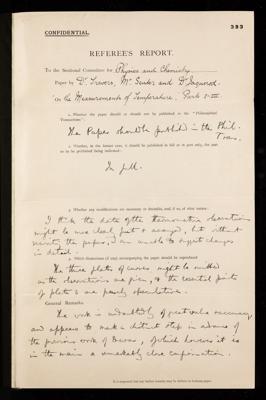 CONFIDENTIAL. 393
REFEREE'S REPORT.
To the Sectional Committee for Physics and Chemistry
Paper by Dr. Travers, Mr Senter and Dr Jaquerod
"On the Measurements of Temperature. Parts I-III
1. Whether the paper should or should not be published in the "Philosophical
Transactions".
The Paper should be published in the Phil.
Trans.
2. Whether, in the former case, it should be published in full or in part only, the part
so to be published being indicated.
In full.
3. Whether any modifications are necessary or desirable, and, if so, of what nature.
I think the data of the thermometric observations
might be more clearly put & arranged, but without
rewriting the paper, I am unable to suggest changes
in detail.
4. Which illustrations (if any) accompanying the paper should be reproduced
The three plates of curves might be omitted
as the observations are given, & the essential points
of plate 3 are purely speculative.
General Remarks.
The work is undoubtedly of great value & accuracy
and appears to make a distinct step in advance of
the previous work of , of which however it is
in the main a remarkably close confirmation.
It is requested that any further remarks may be written on foolscap paper.